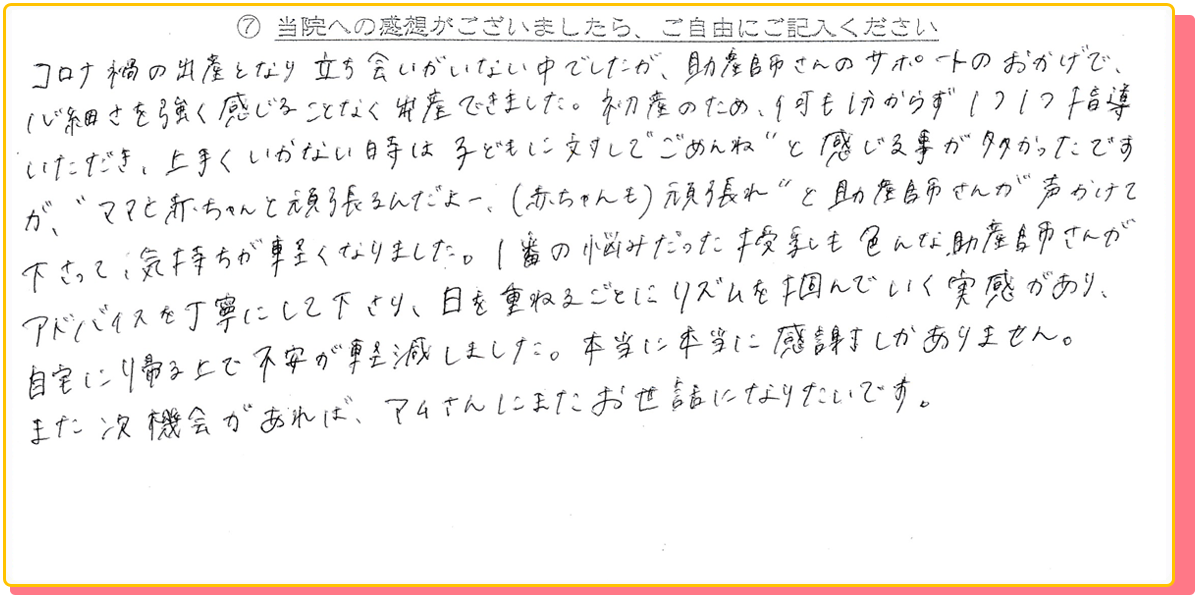 ⑦ 当院への感想がございましたら、ご自由にご記入ください
コロナ禍の出産となり立ち会いがいない中でしたが、助産師さんのサポートのおかげで、
心細さを強く感じることなく出産できました。初産のため、何も分からず1つ1つ指導
いただき、上手くいかない時は子どもに対して"ごめんね"と感じる事が多かったです
が、"ママと赤ちゃんと頑張るんだよー、(赤ちゃんも)頑張れ"と助産師さんが声かけて
下さって、気持ちが軽くなりました。1番の悩みだった授乳も色んな助産師さんが
アドバイスを丁寧にして下さり、日を重ねるごとにリズムを掴んでいく実感があり、
自宅に帰る上で不安が軽減しました。本当に本当に感謝しかありません。
また次機会があれば、アムさんにまたお世話になりたいです。